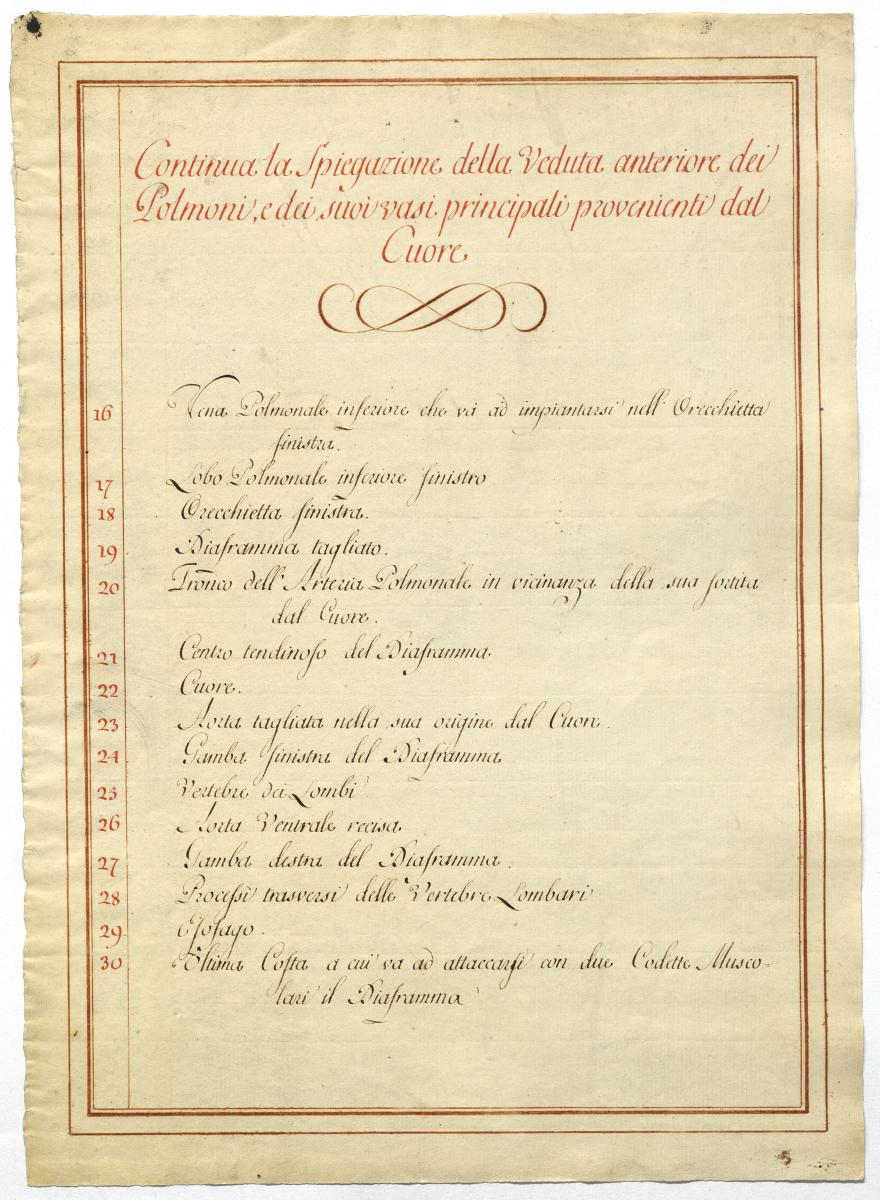 Continua la Spiegazione della Veduta anteriore dei
Polmoni, e dei suoi vasi principali provenienti dal
Cuore
16 Vena Polmonale inferiore che và ad impiantarsi nell' Orecchietta
sinistra.
17 Lobo Polmonale inferiore sinistro
18 Orecchietta sinistra.
19 Diaframma tagliato.
20 Tronco dell' Arteria Polmonale in vicinanza della sua sortita
dal Cuore.
21 Centro tendinoso del Diaframma
22 Cuore.
23 Aorta tagliata nella sua origine dal Cuore.
24 Gamba sinistra del Diaframma
25 Vertebre dei Lombi
26 Aorta Ventrale recisa
27 Gamba destra del Diaframma.
28 Processi trasversi delle Vertebre Lombari
29 Esofago.
30 Ultima Costa a cui và ad attaccarsi con due Codette Musco-
lari il Diaframma